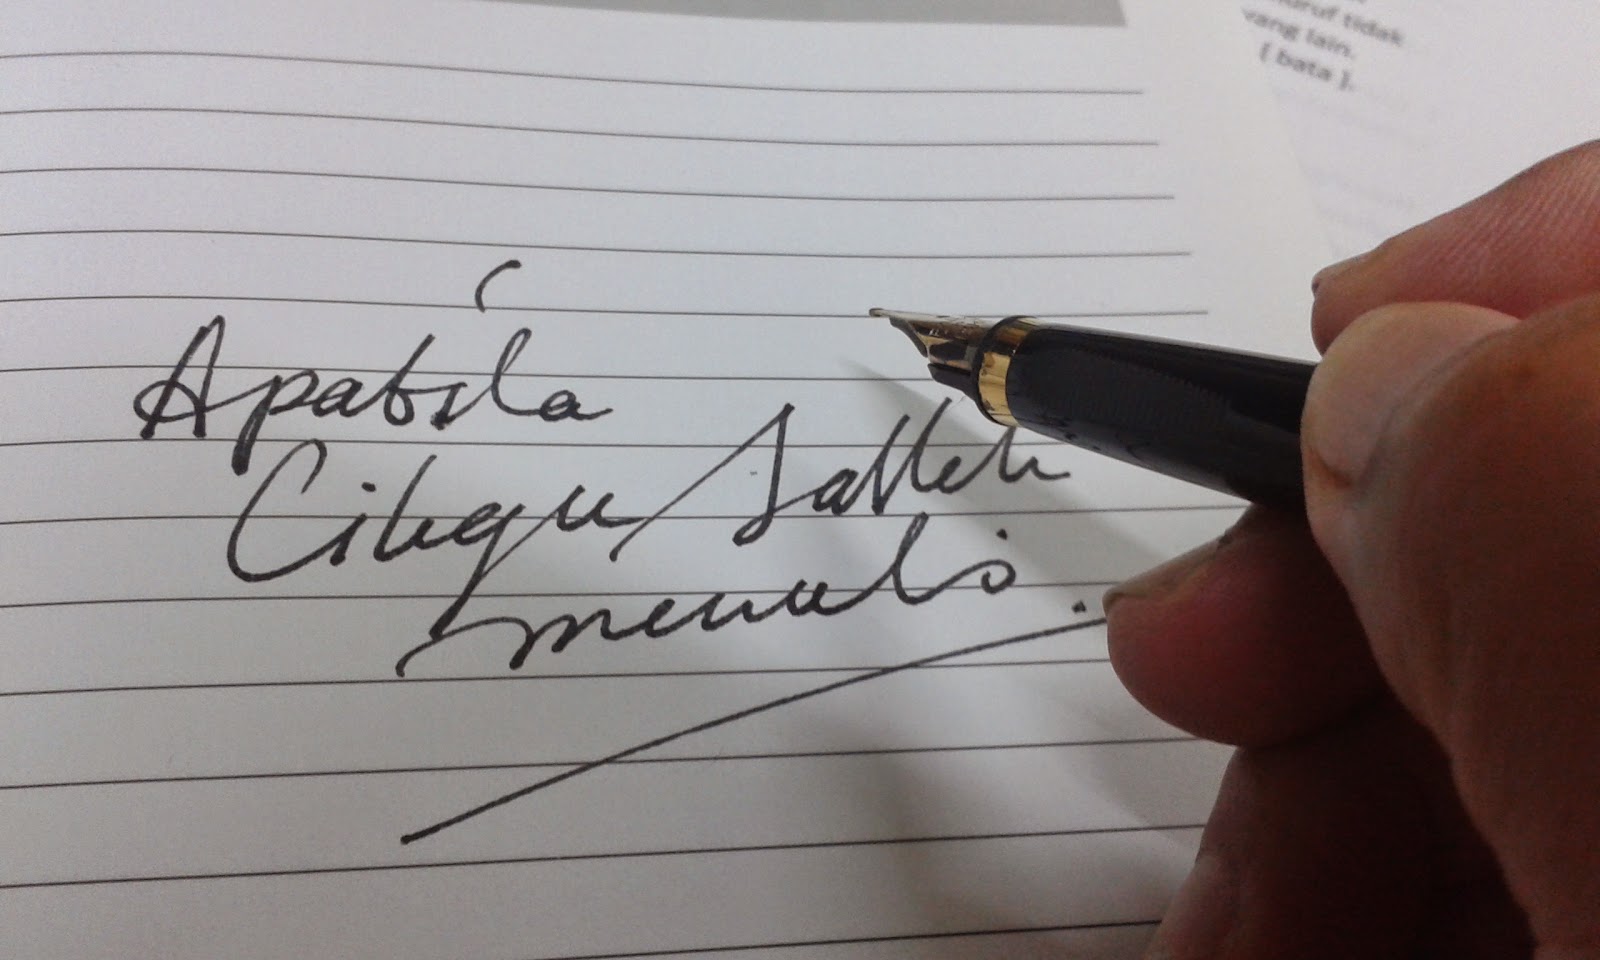 uruf tidak
yang lain.
( bata ).
Apabila
Cikgu Salleh
menulis.